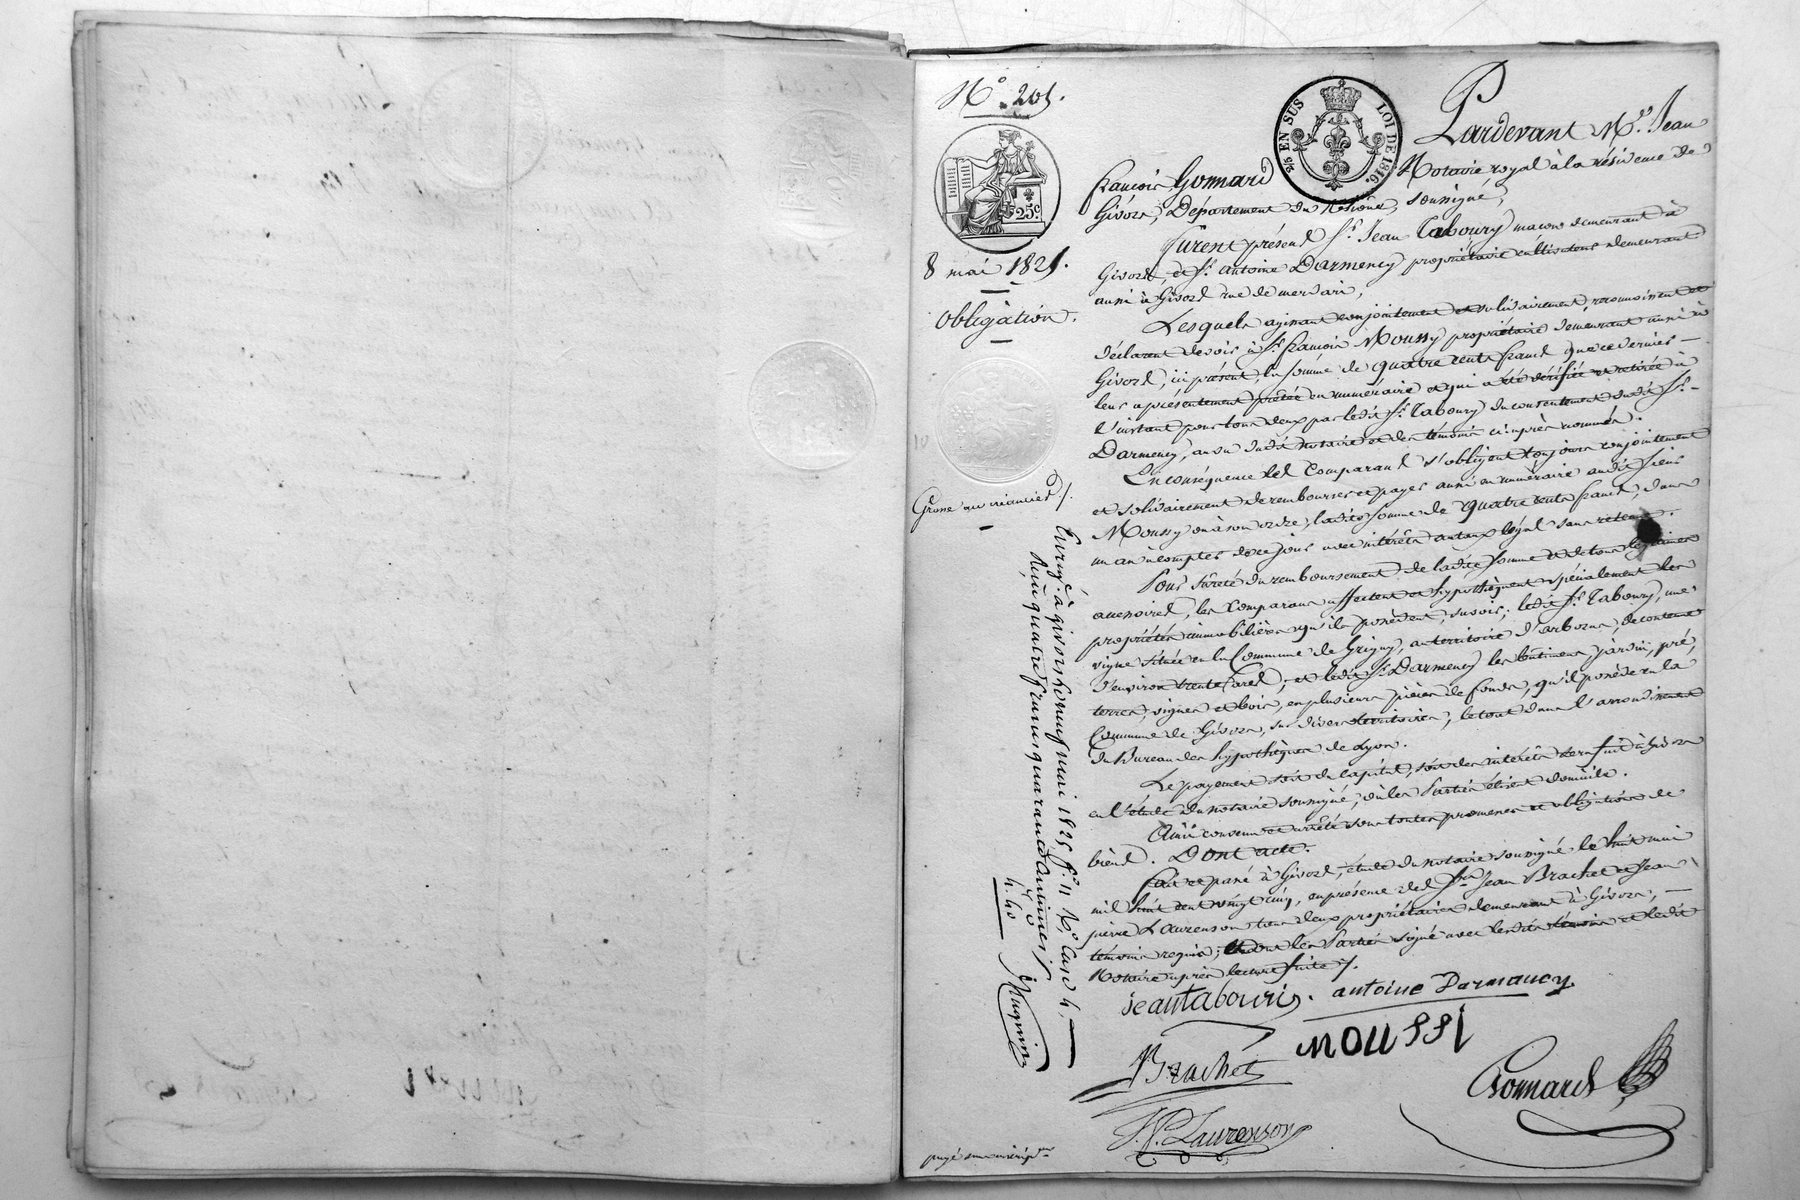 N.° 205.
2/5 EN SUS LOI DE 1816.
25c
8 mai 1825.
Obligation.
Grosse au créancier /.
Pardevant M.e Jean
françois Gonnard Notaire royal à la résidence de
Givors, Département du Rhône, soussigné,
furent présens S.r Jean Taboury maçon demeurant à
Givors, et S.r antoine Darmency propriétaire cultivateur demeurant
aussi à Givors rue de
Lesquels agissant conjointement et solidairement, reconnoissent et
déclarent devoir à S.r françois Moussy propriétaire demeurant aussi à
Givors, ici présent, la somme de quatre cents francs que ce dernier —
leur a présentement prêtée en numéraire et qui a été vérifiée et retirée à
l'instant pour tous deux par ledit S.r Taboury du consentement dudit S.r —
Darmency, au vu dudit notaire et des témoins ci après nommés.
En conséquence les comparans s'obligent toujours conjointement
et solidairement de rembourser et payer aussi en numéraire audit sieur
Moussy ou à son ordre, ladite somme de quatre cents francs, dans
un an à compter de ce jour avec intérêts au taux légal sans retenue.
Pour sûreté du remboursement de ladite somme et de tous légitimes
accessoires, les comparans affectent et hypothèquent spécialement les
propriétés immobilières qu'ils possèdent, savoir; ledit S.r Taboury, une
vigne située en la Commune de Grigny, au territoire d'arboras, de contenue
d'environ trente ares; et ledit S.r Darmency les bâtimens, jardin, pré,
terres, vignes et bois, en plusieurs pièces de fonds, qu'il possède en la
Commune de Givors, sur divers territoires, le tout dans l'arrondissement
du Bureau des hypothèques de Lyon.
Le payement soit du capital, soit des intérêts sera fait à Givors
en l'étude du notaire soussigné, où les Parties élisent domicile.
Ainsi convenu et arrêté sous toutes promesses et obligations de
biens. Dont acte.
Fait et passé à Givors, étude du notaire soussigné le huit mai
mil huit cent vingt cinq, en présence des S.rs Jean Brachet et Jean
pierre Laurenson tous deux propriétaires demeurant à Givors, —
témoins requis; et ont les Parties signé avec lesdits témoins et ledit
Notaire après lecture faite /.
jean tabouris. antoine Darmancy
MOUSSI
Brachet
Gonnard
J.P. Laurenson
Enreg.é à givors le neuf mai 1825 f.° 11 N.° Case 4,
reçu quatre francs quarante centimes /.
4.40
payé sans